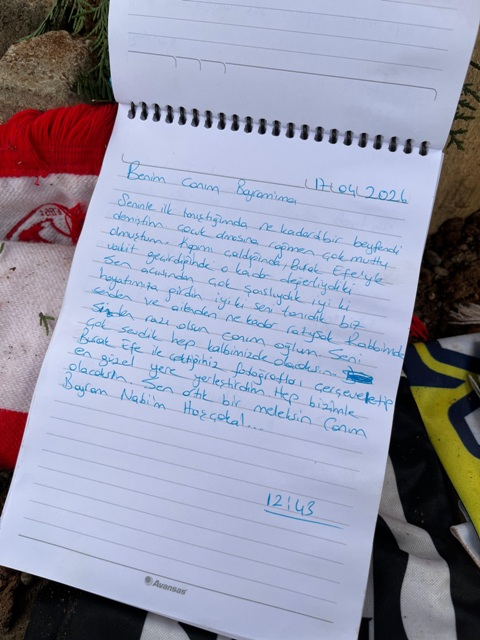 17.04.2026
Benim Canım Bayramıma
Seninle ilk tanıştığımda ne kadarda bir beyfendi
demiştim çocuk olmasına rağmen çok mutlu
olmuştum. Kapımı çaldığında, Burak Efe'yle
vakit geçirdiğinde o kadar değerliydiki
Sen acısından çok şanslıydık iyi ki
hayatımıza girdin iyi ki seni tanıdık biz
senden ve ailenden ne kadar razıysak Rabbimde
Sizden razı olsun canım oğlum. Seni
çok sevdik hep kalbimizde olacaksın
Burak Efe ile çektiğiniz fotoğrafları çerçeveletip
en güzel yere yerleştirdim Hep bizimle
olacaksın. Sen artık bir meleksin Canım
Bayram Nabi'im Hoşçakal...
12:43
Avansas